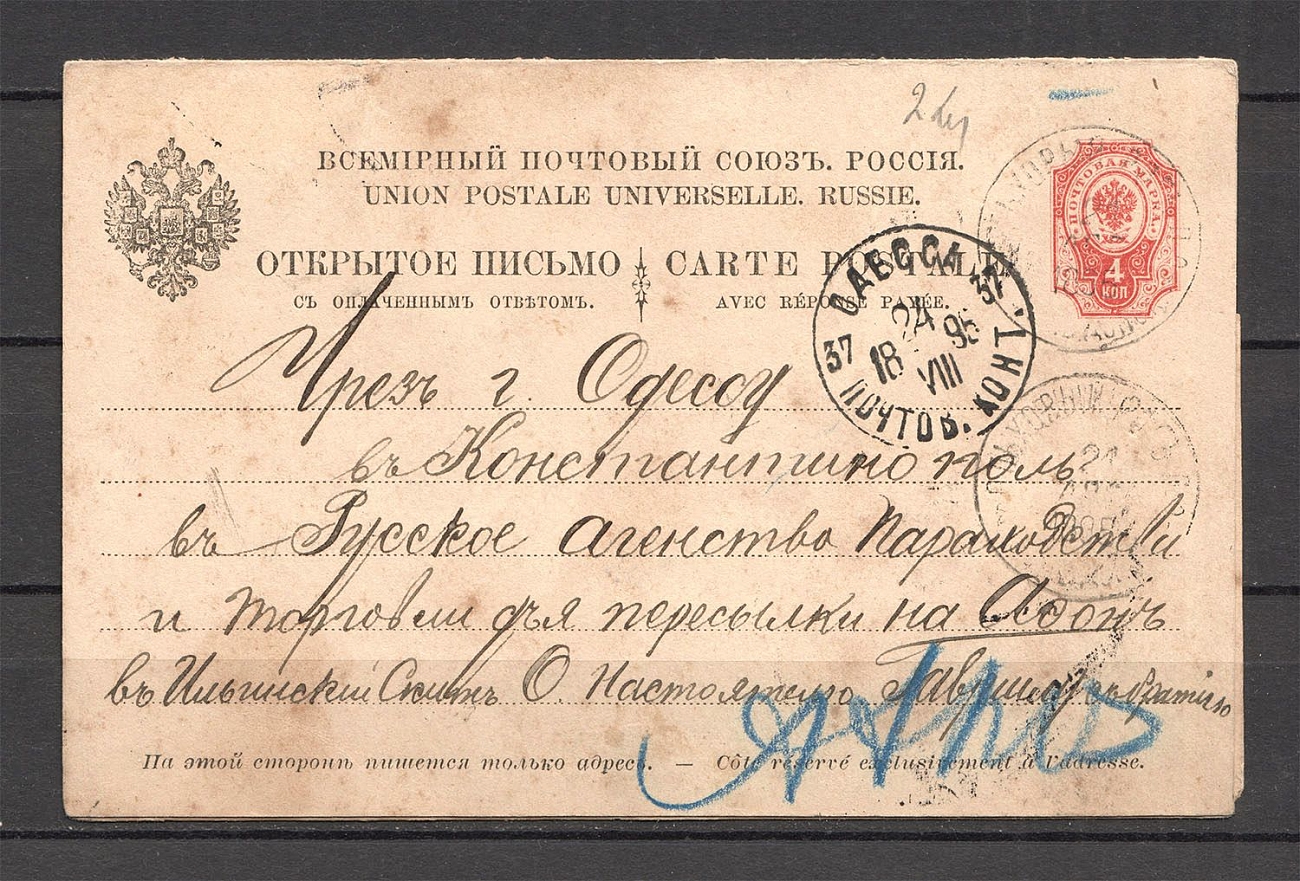 ВСЕМІРНЫЙ ПОЧТОВЫЙ СОЮЗЪ. РОССІЯ.
UNION POSTALE UNIVERSELLE. RUSSIE.
ОТКРЫТОЕ ПИСЬМО CARTE POSTALE
СЪ ОПЛАЧЕННЫМЪ ОТВѢТОМЪ. AVEC RÉPONSE PAYÉE.
ПОЧТОВАЯ МАРКА.
4
КОП
ОДЕССА
37 37
24
18 95
VIII
ПОЧТОВ. КОНТ.
Чрезъ г. Одесоу
въ Константинополь
въ Русское агенство
и Торговли дъя пересылки на Афонъ
въ Ильинскій Скитъ О Настоятелю
21
На этой сторонѣ пишется только адресъ. — Côté réservé exclusivement à l'adresse.